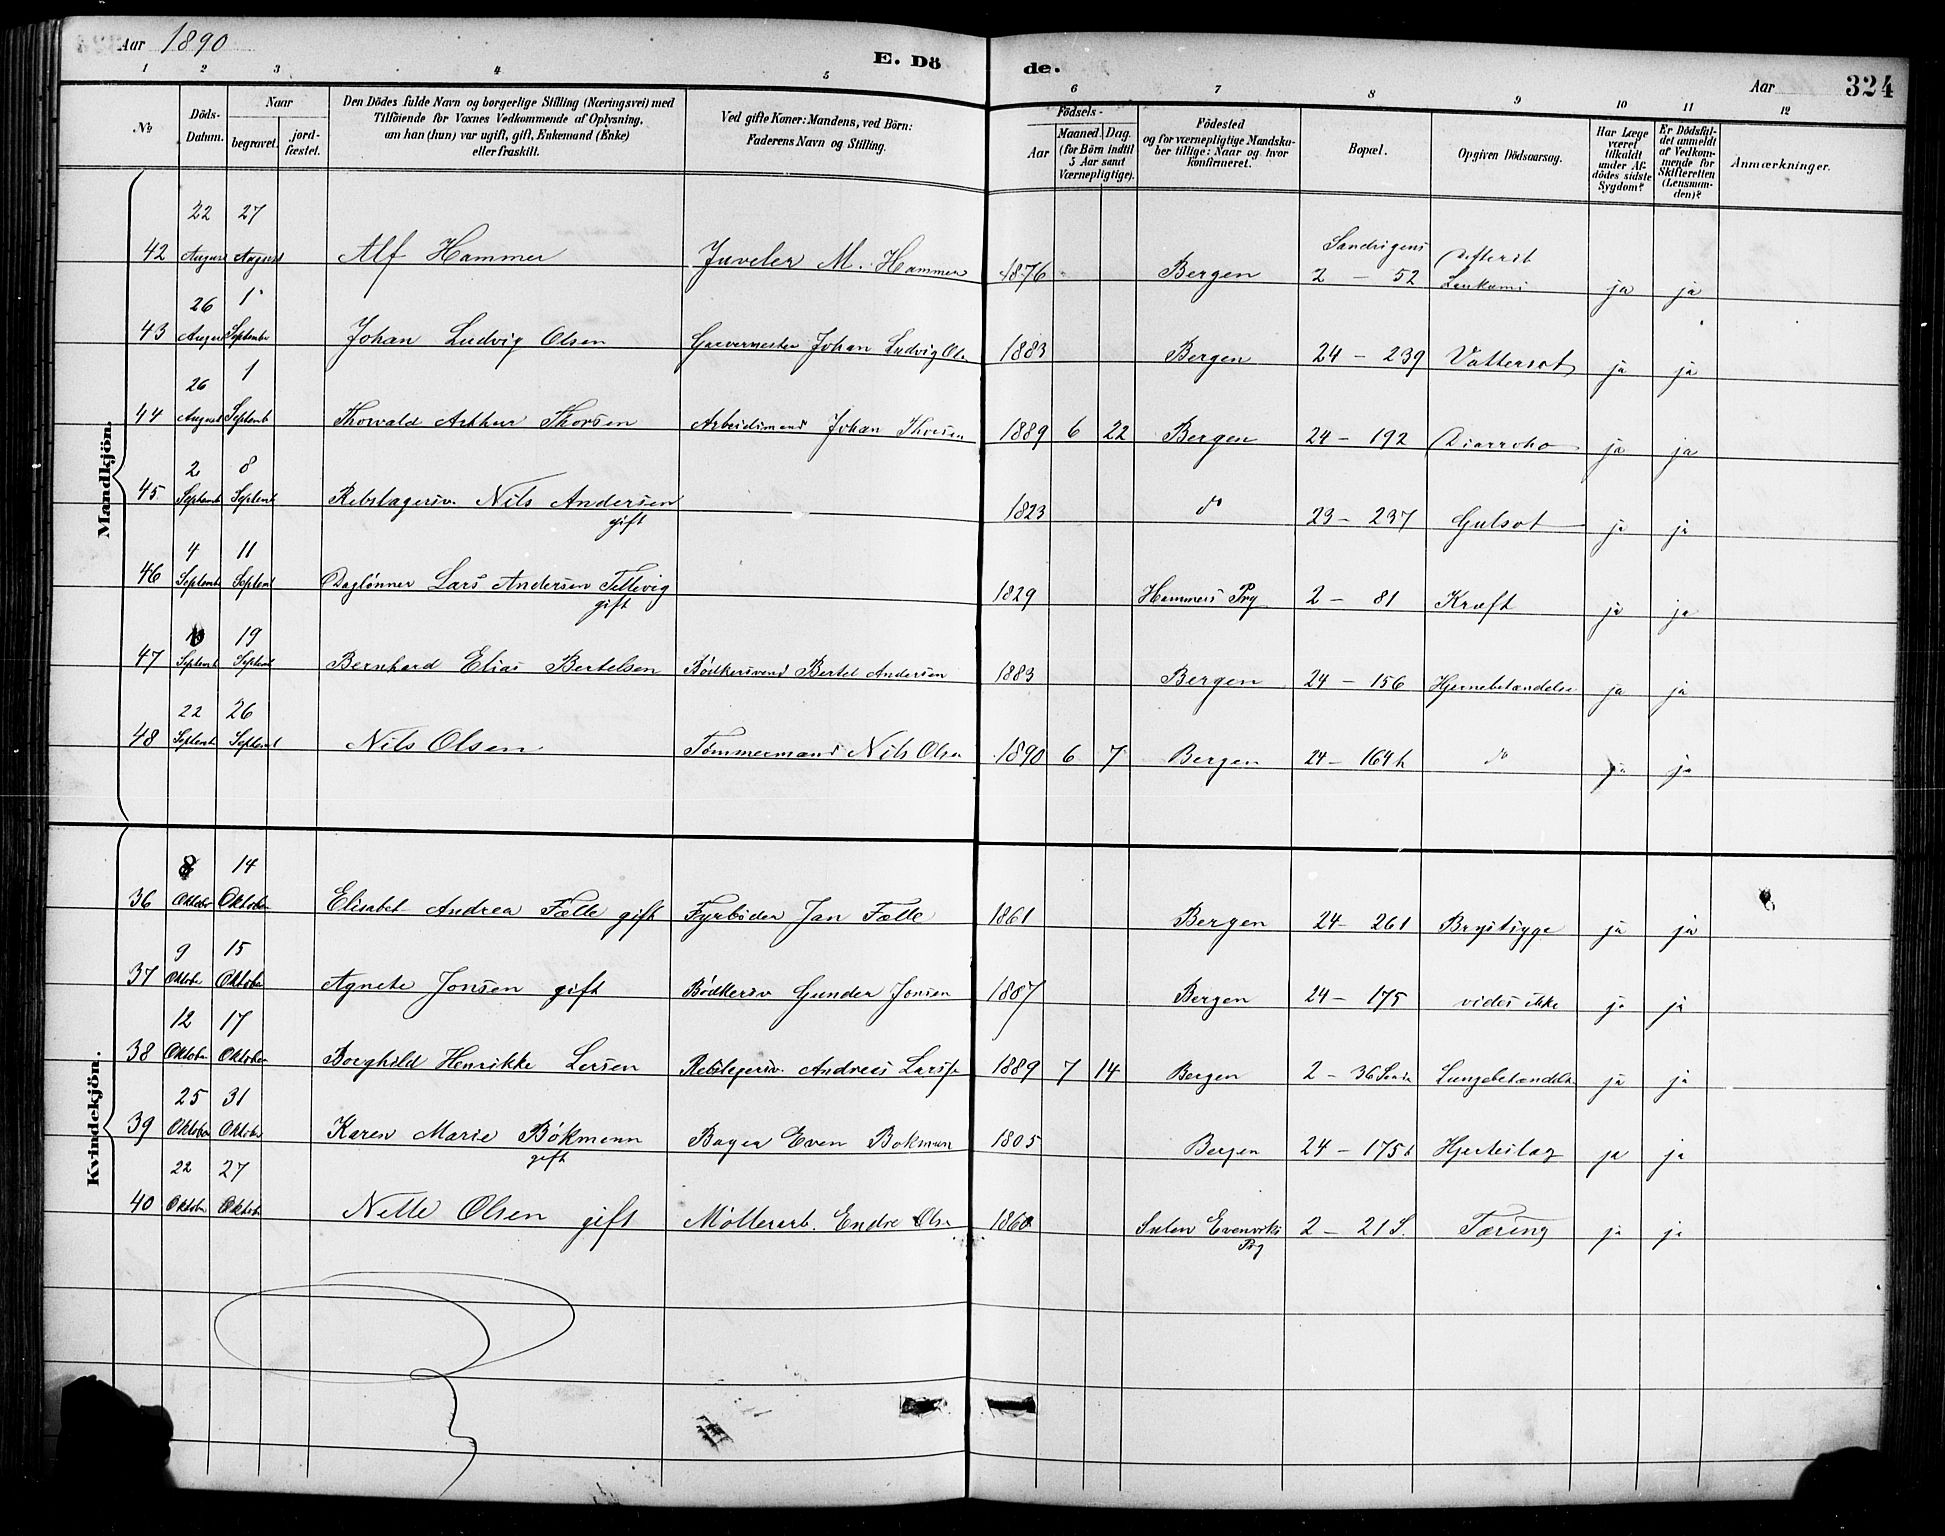 Aar 1890
E. Dö
de.
Aar
324
1 2 3 4 5 6 7 8 9 10 11 12
No
Döds-
Datum.
Naar
begravet.
jord-
fæstet.
Den Dödes fulde Navn og borgerlige Stilling (Næringsvei) med
Tilföiende for Voxnes Vedkommende af Oplysning,
om han (hun) var ugift, gift, Enkemand (Enke)
eller fraskilt.
Ved gifte Koner: Mandens, ved Börn:
Faderens Navn og Stilling.
Födsels-
Aar
Maaned. Dag.
(for Börn indtil
5 Aar samt
Værnepligtige).
Födested
og for værnepligtige Mandska-
ber tillige: Naar og hvor
konfirmeret.
Bopæl.
Opgiven Dödsaarsag.
Har Læge
været
tilkaldt
under Af-
dödes sidste
Sygdom?
Er Dödsfal-
det anmeldt
af Vedkom-
mende for
Skifteretten
(Lensman-
den)?
Anmærkninger.
Mandkjön.
22 27
42 August August Alf Hammer Juveler M. Hammer 1876 Bergen 2 - 52 ja ja
26 1
43 August Septembr Johan Ludvig Olsen Johan Ludvig Olsen 1883 Bergen 24 - 239 Vattersot ja ja
26 1
44 August Septemb Thorvald Arthur Thorsen Arbeidsmand Johan Thorsen 1889 6 22 Bergen 24 - 192 Diarroho ja ja
2 8
45 Septemb Septemb Rebslagersv. Nils Andersen 1823 do 23 - 237 Gulsot ja ja
gift
4 11
46 Septemb Septemb Daglønner Lars Andersen Tellevig 1829 Hammers Prg 2 - 81 Kræft ja ja
gift
19
47 Septemb Septemb Bernhard Elias Bertelsen Bødkersvend Bertel Andersen 1883 Bergen 24 - 156 Hjernebetændelse ja ja
22 26
48 Septemb Septemb Nils Olsen Tømmermand Nils Olsen 1890 6 7 Bergen 24 - 164 b do ja ja
Kvindekjön.
8 14
36 Oktober Oktober Elisabet Andrea Fælle gift Fyrbøder Jan Fælle 1861 Bergen 24 - 261 Brystsyge ja ja
9 15
37 Oktober Oktober Agnete Jonsen gift Bødkersv Gunder Jonsen 1807 Bergen 24 - 175 vides ikke ja ja
12 17
38 Oktober Oktober Borghild Henrikke Larsen Rebslagersv. Andreas Larsen 1889 7 14 Bergen 2 - 36 Lungebetændelse ja ja
25 31
39 Oktober Oktober Karen Marie Bøkmann Bager Even Bøkman 1805 Bergen 24 - 175 b Hjerteslag ja ja
gift
22 27
40 Oktober Oktober Nelle Olsen gift Møllerarb. Endre Olsen 1860 Sulen Evenviks 2 - 21 S. Tæring ja ja
Prg